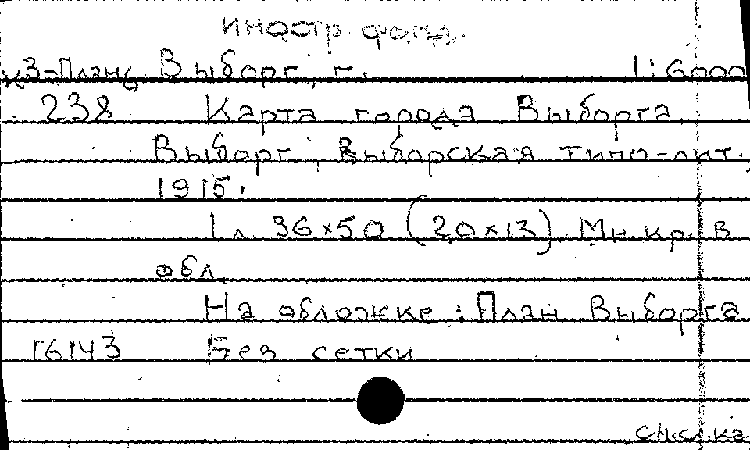 иностр. фонд.
кЗ-План6 Выборг, г. 1:6000
238 Карта города Выборга.
Выборг, Выборгская типо-лит.,
1915.
1 л. 36х50 (20х13). Мн. кр. В
обл.
На обложке: План Выборга
16143 Без сетки